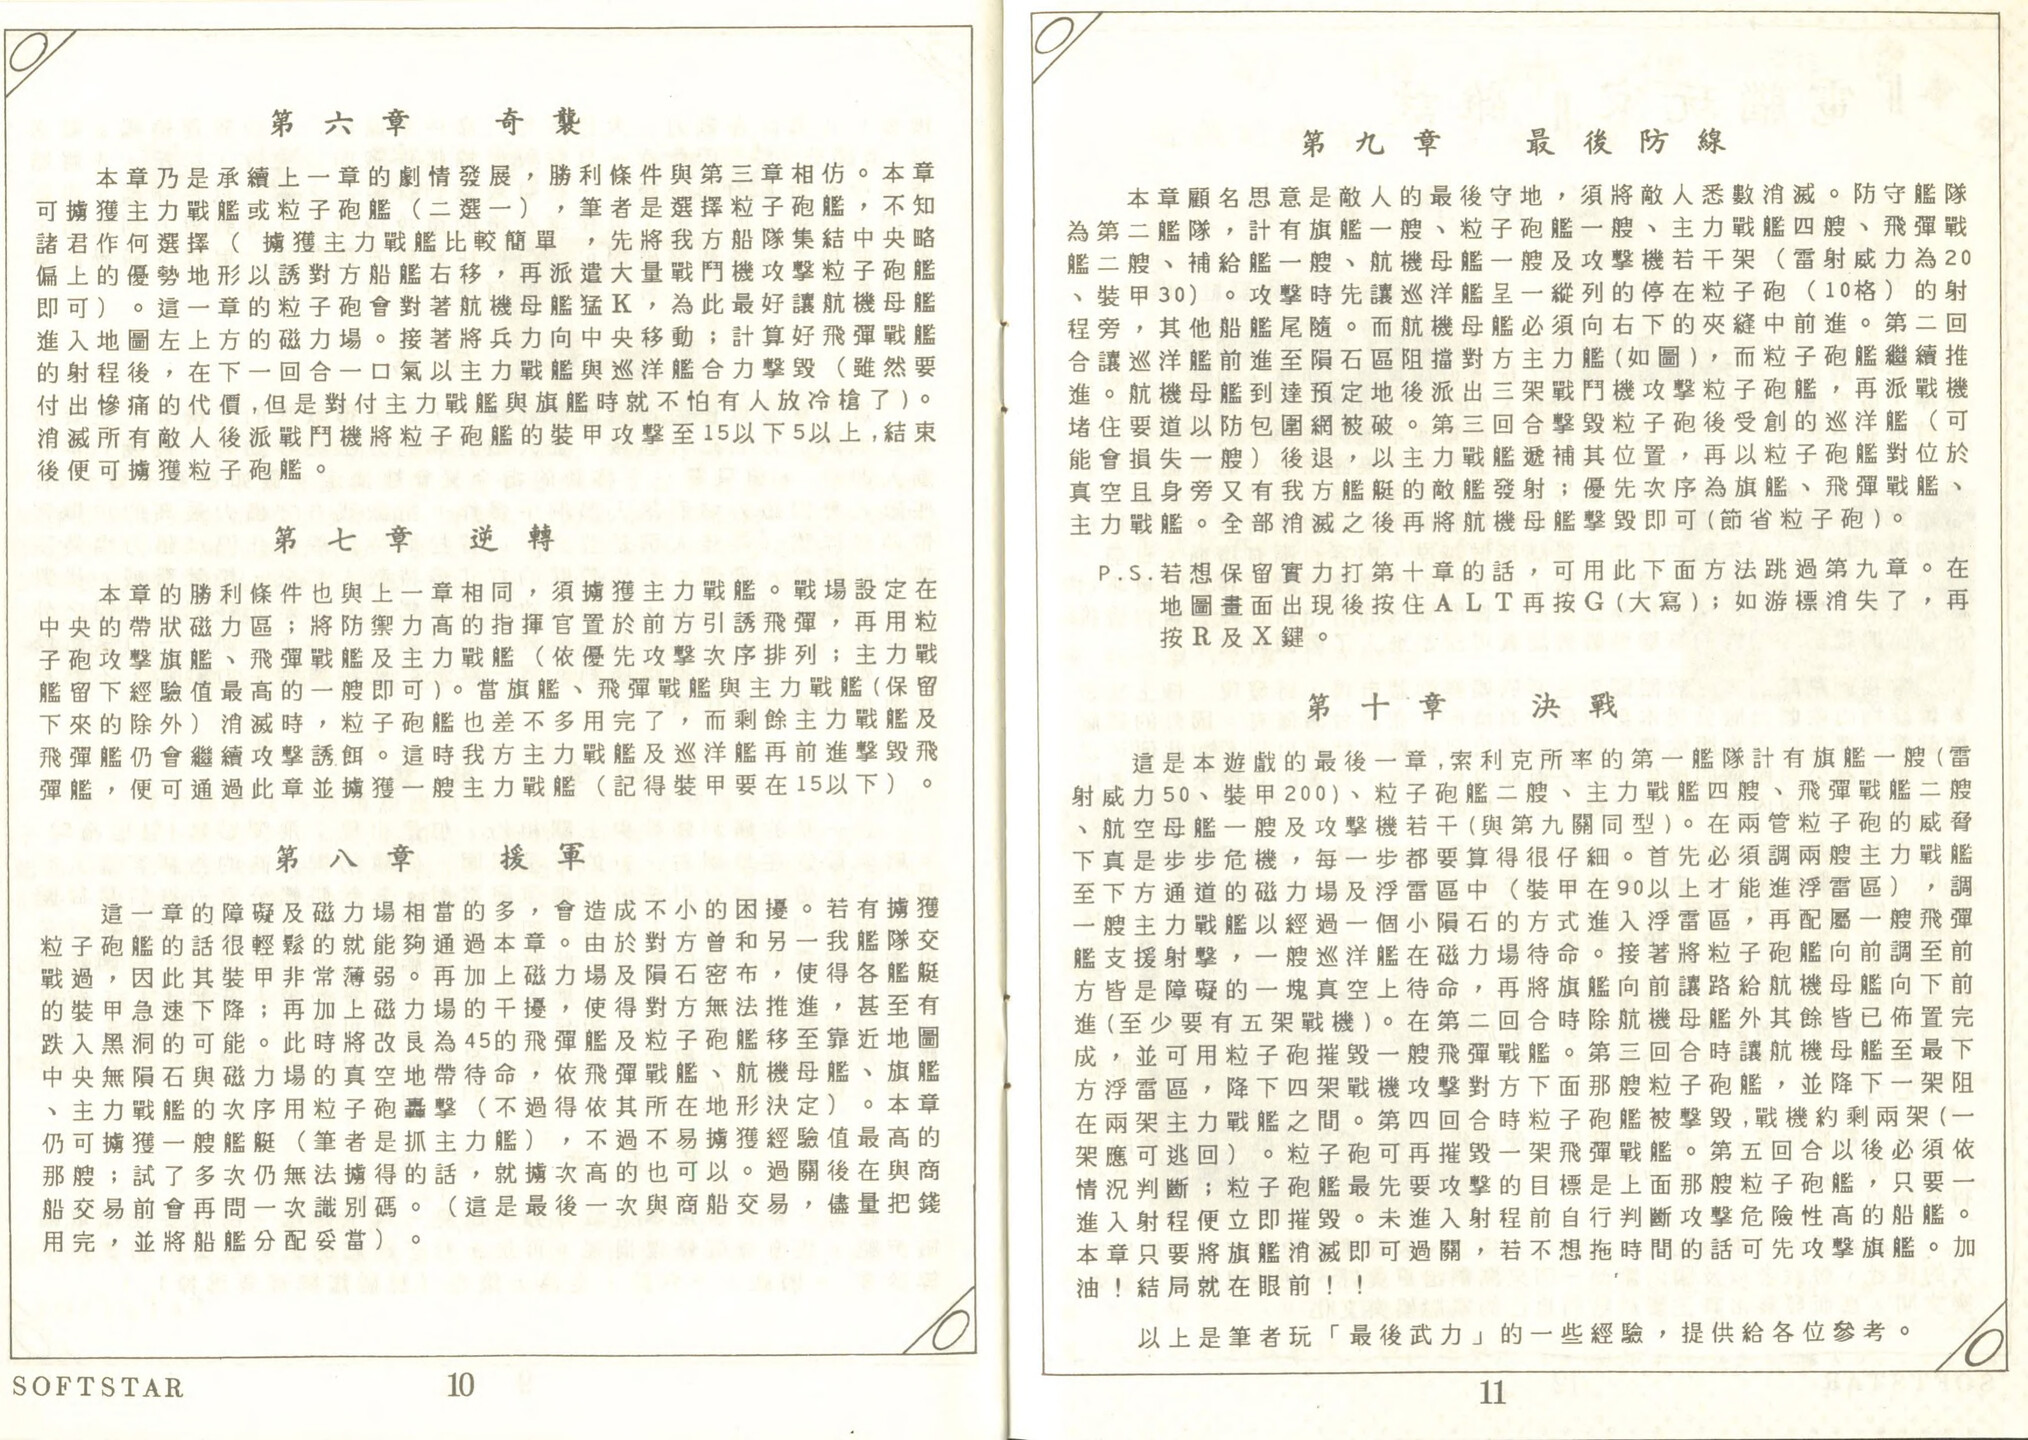 第六章　奇襲
本章乃是承續上一章的劇情發展，勝利條件與第三章相仿。本章
可擄獲主力戰艦或粒子砲艦（二選一），筆者是選擇粒子砲艦，不知
諸君作何選擇（ 擄獲主力戰艦比較簡單 ，先將我方船隊集結中央略
偏上的優勢地形以誘對方船艦右移，再派遣大量戰鬥機攻擊粒子砲艦
即可）。這一章的粒子砲會對著航機母艦猛K，為此最好讓航機母艦
進入地圖左上方的磁力場。接著將兵力向中央移動；計算好飛彈戰艦
的射程後，在下一回合一口氣以主力戰艦與巡洋艦合力擊毀（雖然要
付出慘痛的代價,但是對付主力戰艦與旗艦時就不怕有人放冷槍了)。
消滅所有敵人後派戰鬥機將粒子砲艦的裝甲攻擊至15以下5以上,結束
後便可擄獲粒子砲艦。
第七章　逆轉
本章的勝利條件也與上一章相同，須擄獲主力戰艦。戰場設定在
中央的帶狀磁力區；將防禦力高的指揮官置於前方引誘飛彈，再用粒
子砲攻擊旗艦、飛彈戰艦及主力戰艦（依優先攻擊次序排列；主力戰
艦留下經驗值最高的一艘即可)。當旗艦、飛彈戰艦與主力戰艦(保留
下來的除外）消滅時，粒子砲艦也差不多用完了，而剩餘主力戰艦及
飛彈艦仍會繼續攻擊誘餌。這時我方主力戰艦及巡洋艦再前進擊毀飛
彈艦，便可通過此章並擄獲一艘主力戰艦（記得裝甲要在15以下）。
第八章　援軍
這一章的障礙及磁力場相當的多，會造成不小的困擾。若有擄獲
粒子砲艦的話很輕鬆的就能夠通過本章。由於對方曾和另一我艦隊交
戰過，因此其裝甲非常薄弱。再加上磁力場及隕石密布，使得各艦艇
的裝甲急速下降；再加上磁力場的干擾，使得對方無法推進，甚至有
跌入黑洞的可能。此時將改良為45的飛彈艦及粒子砲艦移至靠近地圖
中央無隕石與磁力場的真空地帶待命，依飛彈戰艦、航機母艦、旗艦
、主力戰艦的次序用粒子砲轟擊（不過得依其所在地形決定）。本章
仍可擄獲一艘艦艇（筆者是抓主力艦），不過不易擄獲經驗值最高的
那艘；試了多次仍無法擄得的話，就擄次高的也可以。過關後在與商
船交易前會再問一次識別碼。（這是最後一次與商船交易，儘量把錢
用完，並將船艦分配妥當）。
SOFTSTAR
10
第九章　最後防線
本章顧名思意是敵人的最後守地，須將敵人悉數消滅。防守艦隊
為第二艦隊，計有旗艦一艘、粒子砲艦一艘、主力戰艦四艘、飛彈戰
艦二艘、補給艦一艘、航機母艦一艘及攻擊機若干架（雷射威力為20
、裝甲30）。攻擊時先讓巡洋艦呈一縱列的停在粒子砲（10格）的射
程旁，其他船艦尾隨。而航機母艦必須向右下的夾縫中前進。第二回
合讓巡洋艦前進至隕石區阻擋對方主力艦(如圖)，而粒子砲艦繼續推
進。航機母艦到達預定地後派出三架戰鬥機攻擊粒子砲艦，再派戰機
堵住要道以防包圍網被破。第三回合擊毀粒子砲後受創的巡洋艦（可
能會損失一艘）後退，以主力戰艦遞補其位置，再以粒子砲艦對位於
真空且身旁又有我方艦艇的敵艦發射；優先次序為旗艦、飛彈戰艦、
主力戰艦。全部消滅之後再將航機母艦擊毀即可(節省粒子砲)。
P.S.若想保留實力打第十章的話，可用此下面方法跳過第九章。在
地圖畫面出現後按住ALT再按G(大寫)；如游標消失了，再
按R及X鍵。
第十章　決戰
這是本遊戲的最後一章,索利克所率的第一艦隊計有旗艦一艘(雷
射威力50、裝甲200)、粒子砲艦二艘、主力戰艦四艘、飛彈戰艦二艘
、航空母艦一艘及攻擊機若干(與第九關同型)。在兩管粒子砲的威脅
下真是步步危機，每一步都要算得很仔細。首先必須調兩艘主力戰艦
至下方通道的磁力場及浮雷區中（裝甲在90以上才能進浮雷區），調
一艘主力戰艦以經過一個小隕石的方式進入浮雷區，再配屬一艘飛彈
艦支援射擊，一艘巡洋艦在磁力場待命。接著將粒子砲艦向前調至前
方皆是障礙的一塊真空上待命，再將旗艦向前讓路給航機母艦向下前
進(至少要有五架戰機)。在第二回合時除航機母艦外其餘皆已佈置完
成，並可用粒子砲摧毀一艘飛彈戰艦。第三回合時讓航機母艦至最下
方浮雷區，降下四架戰機攻擊對方下面那艘粒子砲艦，並降下一架阻
在兩架主力戰艦之間。第四回合時粒子砲艦被擊毀,戰機約剩兩架(一
架應可逃回）。粒子砲可再摧毀一架飛彈戰艦。第五回合以後必須依
情況判斷；粒子砲艦最先要攻擊的目標是上面那艘粒子砲艦，只要一
進入射程便立即摧毀。未進入射程前自行判斷攻擊危險性高的船艦。
本章只要將旗艦消滅即可過關，若不想拖時間的話可先攻擊旗艦。加
油！結局就在眼前！！
以上是筆者玩「最後武力」的一些經驗，提供給各位參考。
11